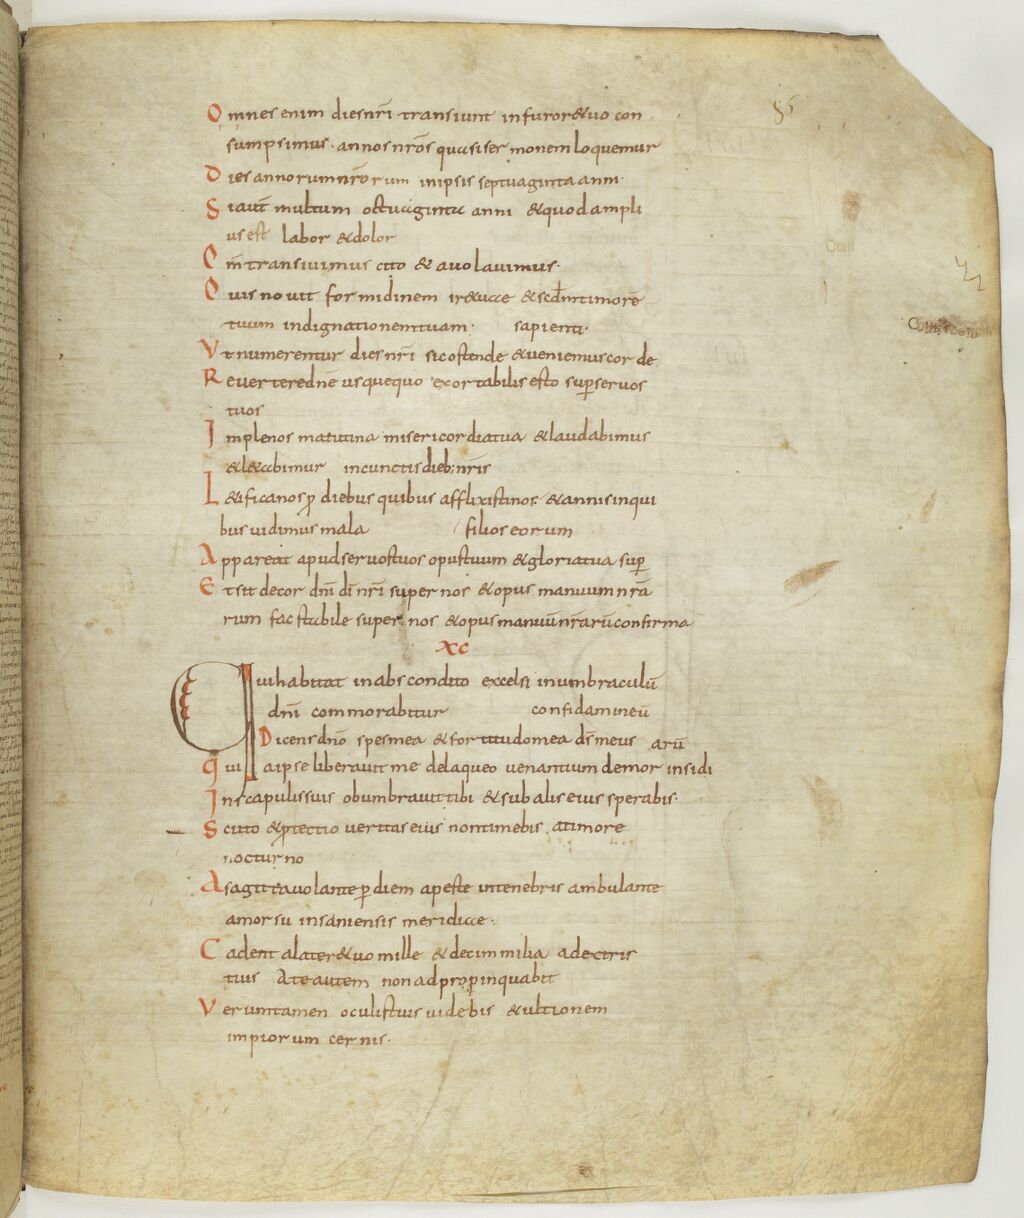 85
Omnes enim dies nr̄i transiunt in furore tuo con
sumpsimus · annos nr̄os quasi sermonem loquemur
Dies annorum nr̄orum in ipsis septuaginta anni·
Si aut̄ multum octuaginta anni & quod ampli
us est labor & dolor
Qm̄ transivimus cito & avolavimus·
Quis novit formidinem irę tuę & scd̄m timorē
tuum indignationem tuam· sapienti·
Ut numerentur dies nr̄i sic ostende & veniemus corde
Revertere dn̄e usquequo exortabilis esto sup̄ servos
tuos
Imple nos matutina misericordia tua & laudabimus
& l&abimur in cunctis dieb; nr̄is
L&ifica nos p̄ diebus quibus afflixisti nos & annis in qui
bus vidimus mala filios eorum
Appareat apud servos tuos opus tuum & gloria tua sup̄
Et sit decor dn̄i di̅ nr̄i super nos & opus manuum nr̄a
rum fac stabile super nos & opus manuū nr̄arū confirma
xc
Qui habitat in abscondito excelsi in umbraculū
dn̄i commorabitur confidam in eū
Dicens dn̄o spes mea & fortitudo mea ds̄ meus arū
quia ipse liberavit me de laqueo venantium de mor insidi
In scapulis suis obumbravit tibi & sub alis eius sperabis·
Scuto & p̄tectio veritas eius non timebis a timore
nocturno
A sagitta volante p̄ diem a peste in tenebris ambulante
a morsu insanientis meridię·
Cadent a latere tuo mille & decim milia a dextris
tuis Ad te autem non adpropinquabit
Veruntamen oculis tuis videbis & ultionem
impiorum cernis·